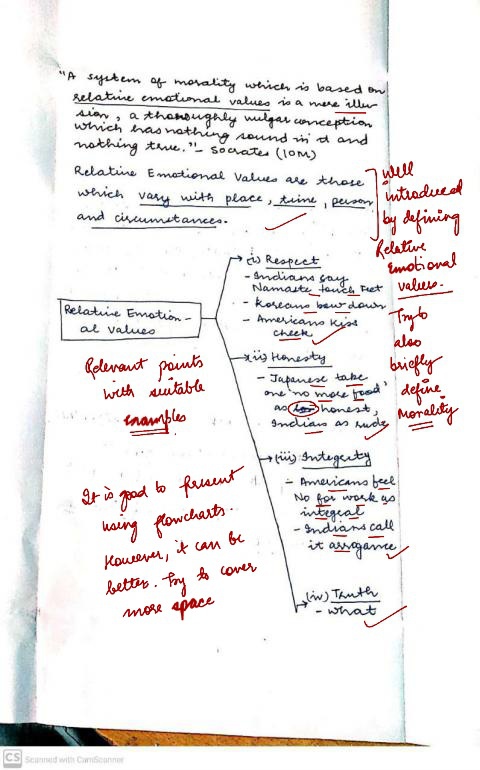 "A system of morality which is based on
relative emotional values is a mere illu-
sion, a thoroughly vulgar conception
which has nothing sound in it and
nothing true." - Socrates (10M)
Relative Emotional Values are those
which vary with place, time, person
and circumstances.
Well
introduced
by defining
Relative
Emotional
values.
Try to
also
briefly
define
Morality
Relative Emotion-
al values
(i) Respect
- Indians say
Namaste, touch Feet
- Koreans bow down
- Americans kiss
cheek
(ii) Honesty
- Japanese take
one 'no more food'
as honest,
Indians as rude
(iii) Integrity
- Americans feel
No for work as
integral
- Indians call
it arrogance
(iv) Truth
- What
Relevant points
with suitable
examples
It is good to present
using flowcharts.
However, it can be
better. Try to cover
more space
CS Scanned with CamScanner